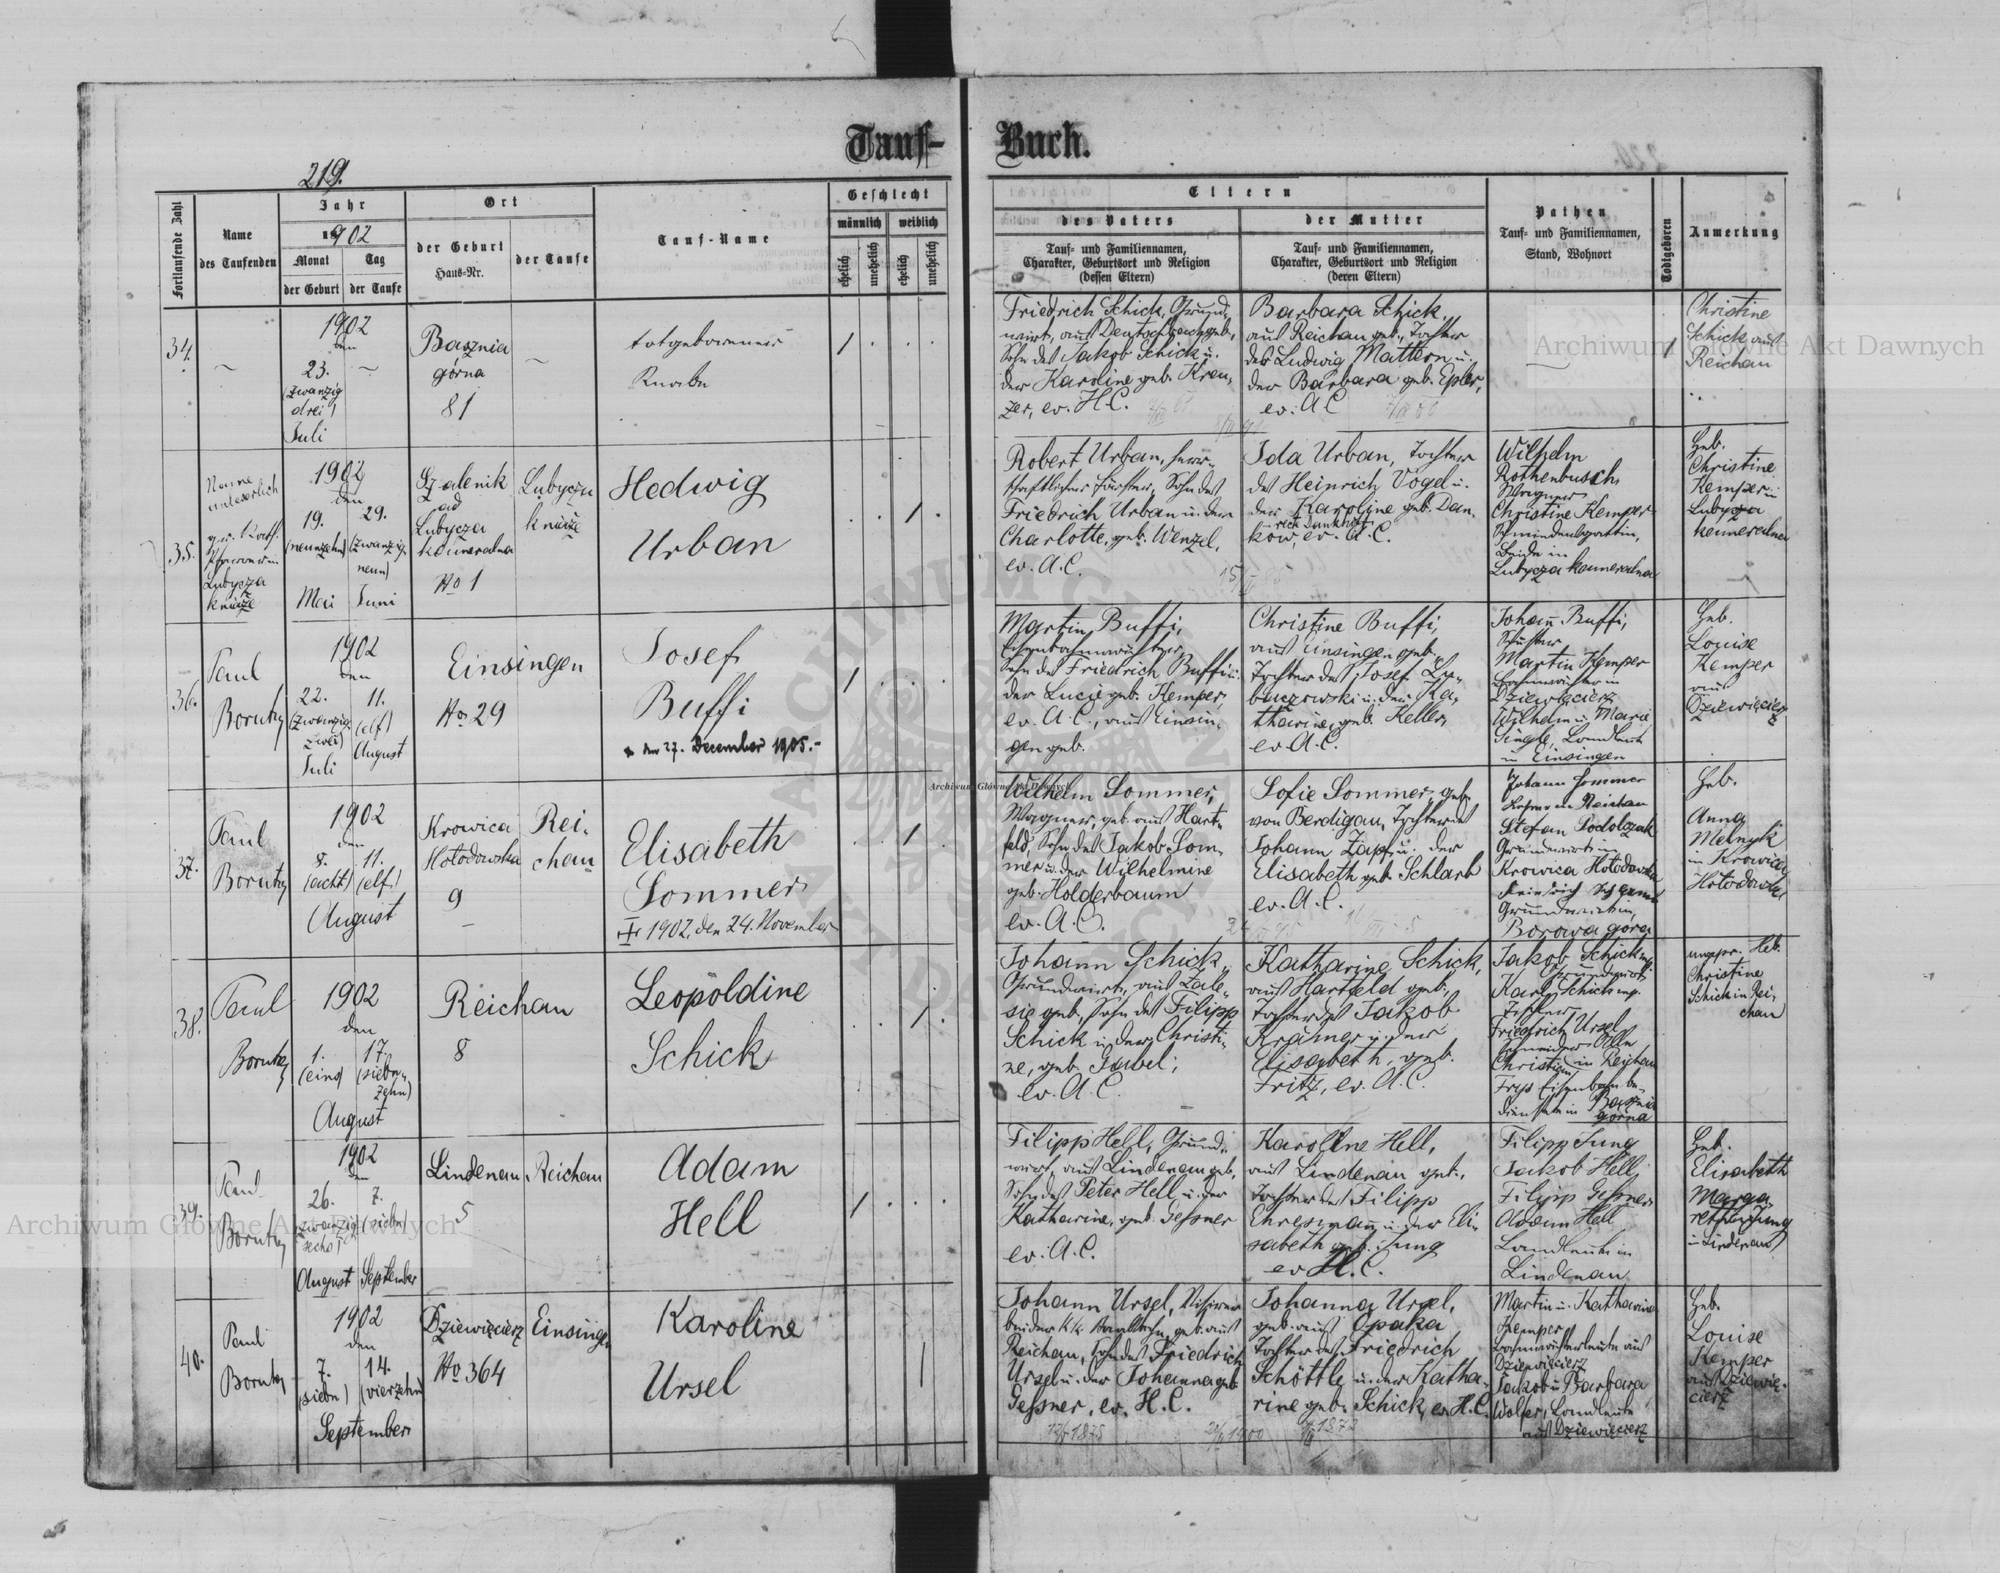 Tauf-
Buch.
219.
Fortlaufende Zahl
Name
des Taufenden
Jahr
1902
Monat
Tag
der Geburt
der Taufe
Ort
der Geburt
Haus-Nr.
der Taufe
Tauf-Name
Geschlecht
männlich
weiblich
ehelich
unehelich
ehelich
unehelich
Eltern
des Vaters
Tauf- und Familiennamen,
Charakter, Geburtsort und Religion
(dessen Eltern)
der Mutter
Tauf- und Familiennamen,
Charakter, Geburtsort und Religion
(deren Eltern)
Pathen
Tauf- und Familiennamen,
Stand, Wohnort
Todtgeboren
Anmerkung
34.
1902
den
23.
(zwanzig
drei)
Juli
Basznia
górna
81
totgeborener
Knabe
Friedrich Schick, Grund-
wirt, aus Deutschbach geb.,
Sohn des Jakob Schick u.
der Karoline geb. Kreu-
zer, ev. H.C.
Barbara Schick,
aus Reichau geb., Tochter
des Ludwig Mattern u.
der Barbara geb. Epler,
ev. A.C.
Christine
Schick aus
Reichau
35.
Name
unleserlich
gr. Kath.
Pfarrer in
Lubycza
kniaze
1902
den
19.
(neunzehn)
Mai
29.
(zwanzig-
neun)
Juni
Szalenik
ad
Lubycza
kameralna
No 1
Lubycza
kniaze
Hedwig
Urban
Robert Urban, herr-
schaftlicher Förster, Sohn des
Friedrich Urban u. der
Charlotte, geb. Wenzel,
ev. A.C.
Ida Urban, Tochter
des Heinrich Vogel u.
der Karoline geb. Dan-
kow, ev. A.C.
Wilhelm
Rothenbusch,
Wagner
Christine Kemper
Schmiedensgattin,
Beide in
Lubycza kameralna
Heb.
Christine
Kemper in
Lubycza
kameralna
36.
Paul
Borutzy
1902
den
22.
(zwanzig
zwei)
Juli
11.
(elf)
August
Einsingen
No 29
Josef
Buffi
den 27. December 1905.-
Martin Buffi,
Eisenbahnwächter,
Sohn des Friedrich Buffi u.
der Lucie geb. Kemper,
ev. A.C., aus Einsin-
gen geb.
Christine Buffi,
aus Einsingen geb.,
Tochter des Josef Ły-
buczowski u. der Ka-
tharine, geb. Keller,
ev. A.C.
Johann Buffi,
Schuster
Martin Kemper
Bahnwächter in
Dziewięcierz
Wilhelm u. Marie
Single, Landleute
in Einsingen
Heb.
Louise
Kemper
aus
Dziewięcierz
37.
Paul
Borutzy
1902
den
8.
(acht)
11.
(elf)
August
Krowica
Hołodowska
9
Rei-
chau
Elisabeth
Sommer
1902, den 24. November
Wilhelm Sommer,
Wagner, geb. aus Hart-
feld, Sohn des Jakob Som-
mer u. der Wilhelmine
geb. Holderbaum
ev. A.C.
Sofie Sommer, geb.
von Berdigau, Tochter des
Johann Zapf u. der
Elisabeth geb. Schlarb
ev. A.C.
Johann Sommer
Lehrer in Reichau
Stefan Podolczak
Grundwirt in
Krowica Hołodowska
Grundwirt in
Borowa gora
Heb.
Anna
Melnyk
in Krowica
Hołodowska
38.
Paul
Borutzy
1902
den
1.
(eins)
17.
(sieben-
zehn)
August
Reichau
8
Leopoldine
Schick
Johann Schick,
Grundwirt, aus Zale-
sie geb., Sohn des Filipp
Schick u. der Christi-
ne, geb. Gabel;
ev. A.C.
Katharine Schick,
aus Hartfeld geb.,
Tochter des Jakob
Krämer u. der
Elisabeth, geb.
Fritz, ev. A.C.
Jakob Schick
Grundwirt
Karl Schick
Friedrich Ursel
Christian in Reichau
Eisenbahn be-
diensteter in Basznia
górna
ungepr. Heb.
Christine
Schick in Rei-
chau
39.
Paul
Borutzy
1902
den
26.
(zwanzig
sechs)
August
7.
(sieben)
September
Lindenau
5
Reichau
Adam
Hell
Filipp Hell, Grund-
wirt, aus Lindenau geb.,
Sohn des Peter Hell u. der
Katharine, geb. Gessner
ev. A.C.
Karoline Hell,
aus Lindenau geb.,
Tochter des Filipp
Ehresmann u. der Eli-
sabeth geb. Jung
ev. H.C.
Filipp Jung
Jakob Hell,
Filipp Gessner,
Adam Hell
Landleute in
Lindenau
Heb.
Elisabeth
Marga-
rethe Jung
in Lindenau
40.
Paul
Borutzy
1902
den
7.
(sieben)
14.
(vierzehn)
September
Dziewięcierz
No 364
Einsingen
Karoline
Ursel
Johann Ursel,
bei der k.k. Staatsbahn, geb. aus
Reichau, Sohn des Friedrich
Ursel u. der Johanna geb.
Gessner, ev. H.C.
Johanna Ursel,
geb. aus Opaka
Tochter des Friedrich
Schöttle u. der Katha-
rine geb. Schick, ev. H.C.
Martin u. Katharine
Kemper,
Bahnwächterleute aus
Dziewięcierz
Jakob u. Barbara
Wolfer, Landleute
aus Dziewięcierz
Heb.
Louise
Kemper
aus Dziewię-
cierz
Archiwum Główne Akt Dawnych
Archiwum Główne Akt Dawnych
Archiwum Główne Akt Dawnych